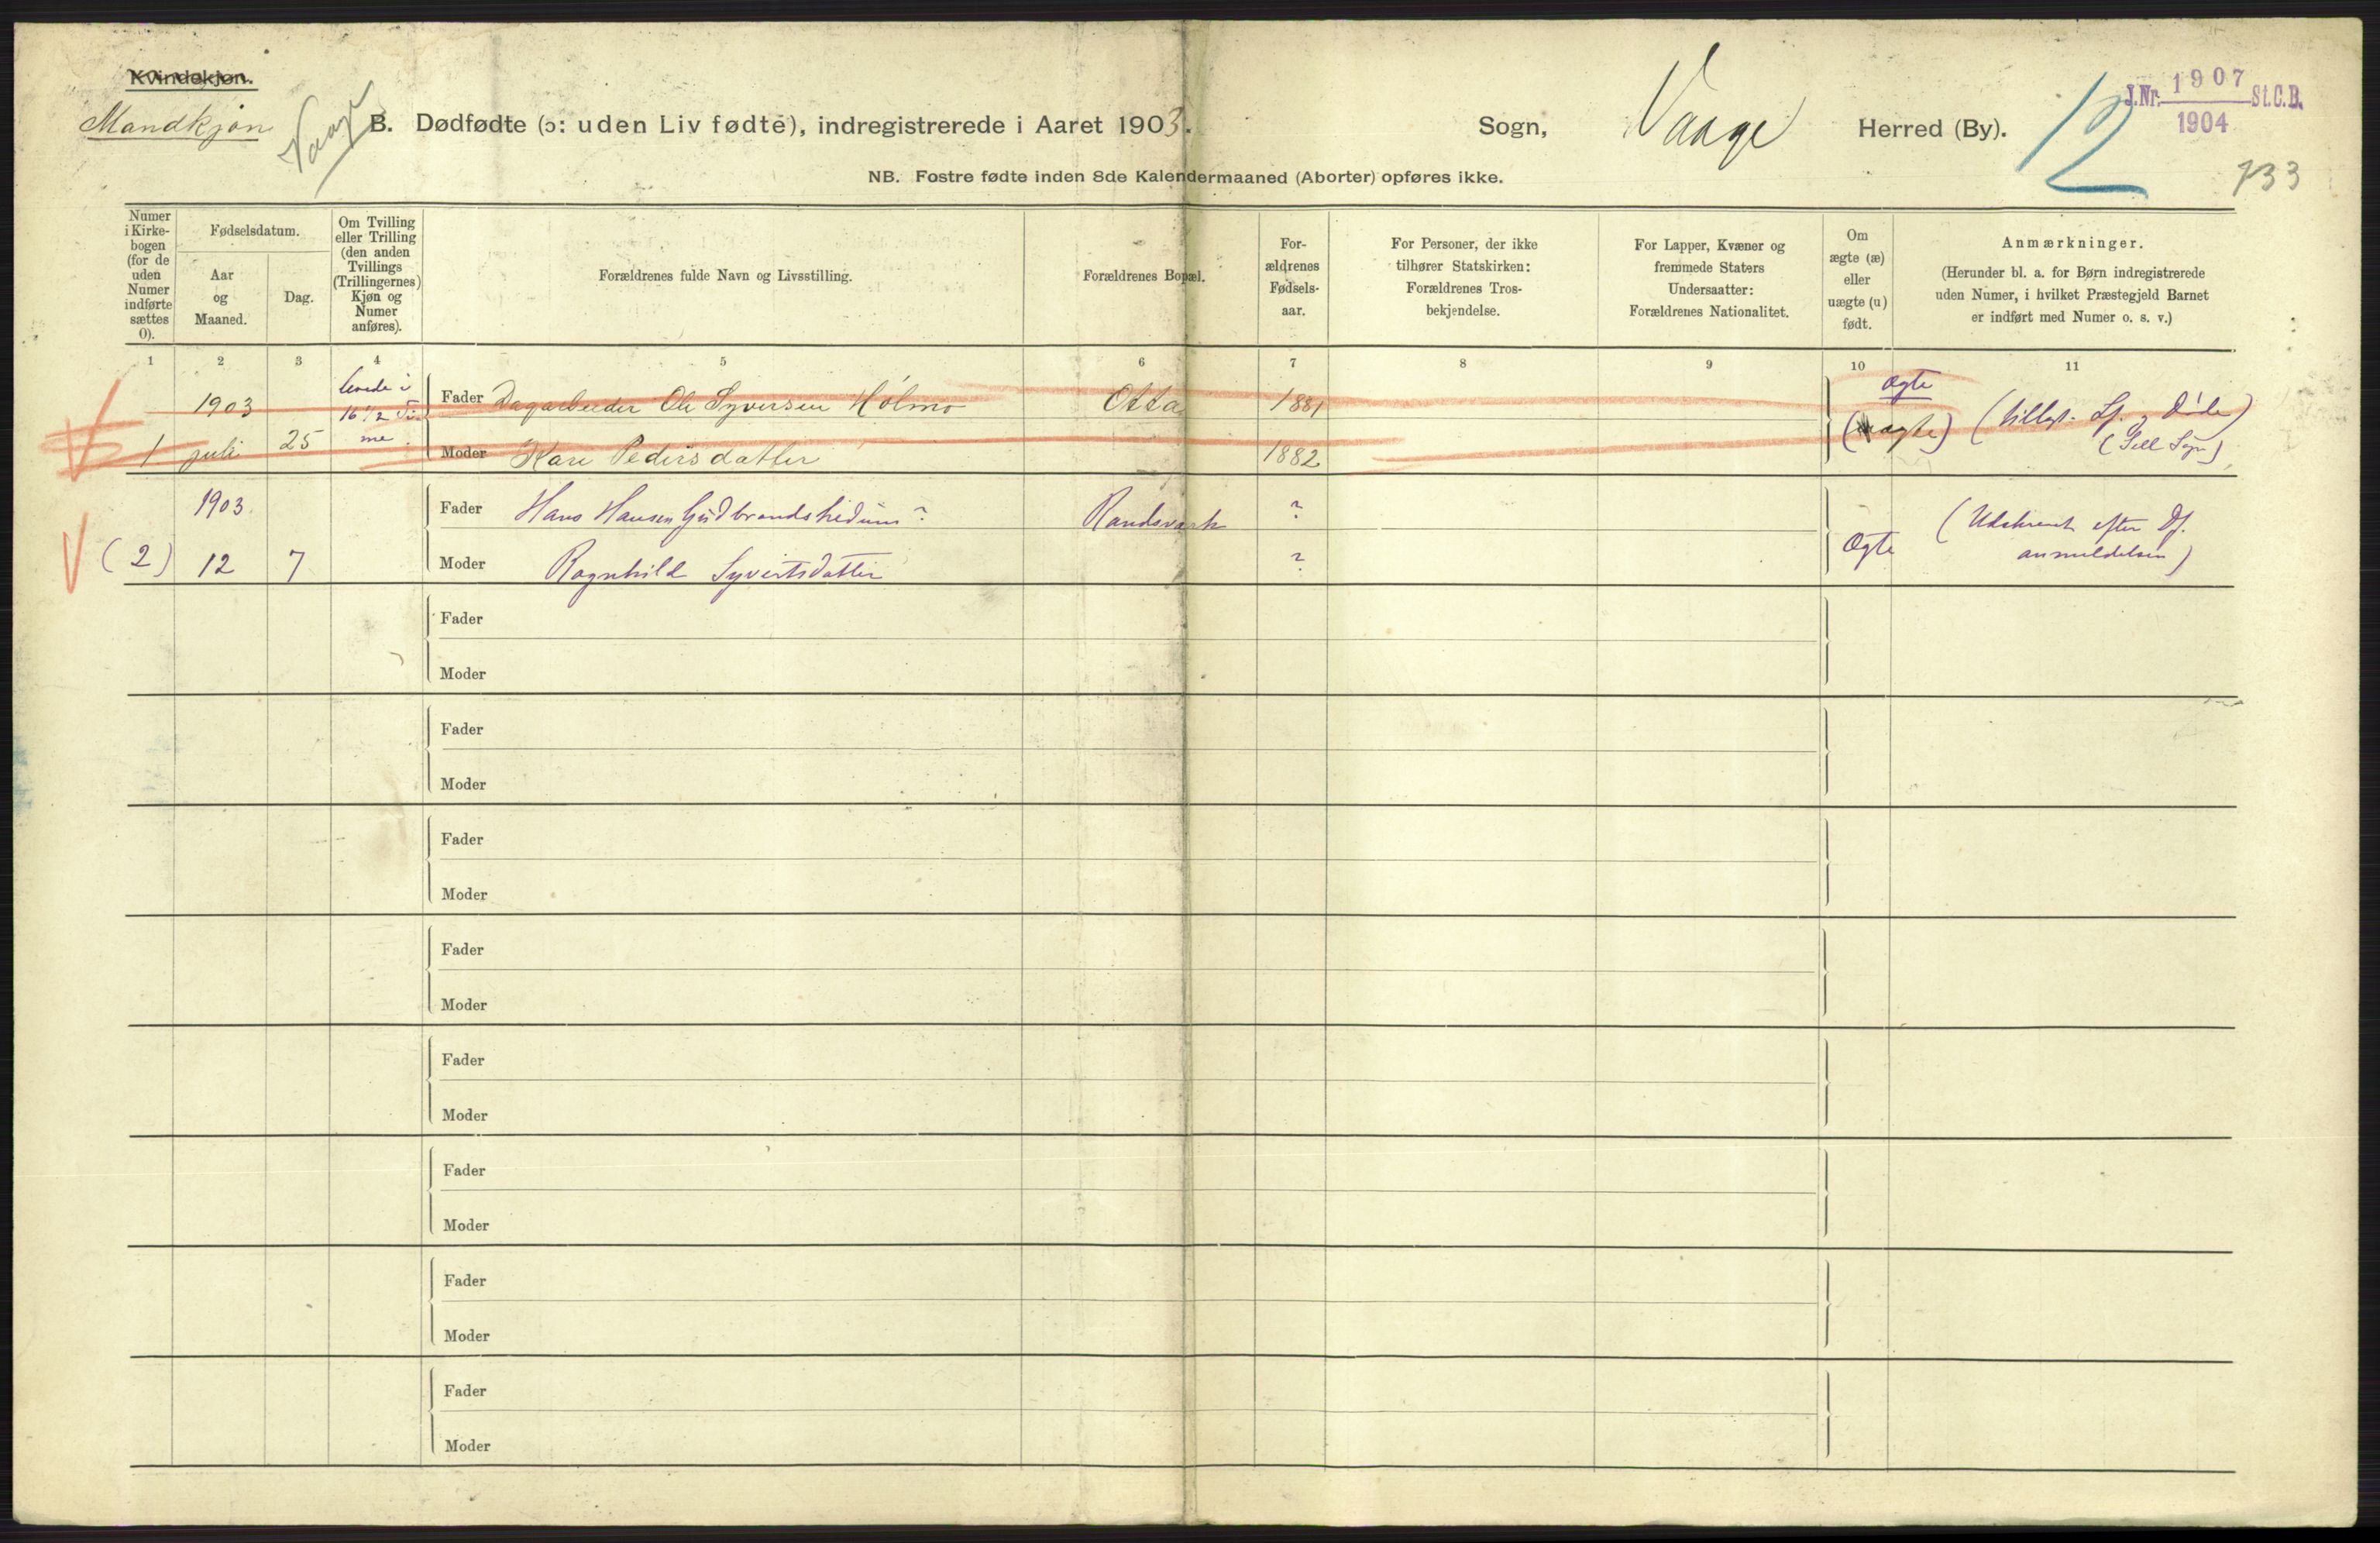 Kvindekjøn.
Mandkjøn
Vaage
B. Dødfødte (ɔ: uden Liv fødte), indregistrerede i Aaret 1903.
Sogn, Vaage Herred (By).
12
J.Nr. 1907 St.C.B.
1904
733
NB. Fostre fødte inden 8de Kalendermaaned (Aborter) opføres ikke.
Numer i Kirke-bogen (for de uden Numer indførte sættes 0).
Fødselsdatum.
Aar og Maaned.
Dag.
Om Tvilling eller Trilling (den anden Tvillings (Trillingernes) Kjøn og Numer anføres).
Forældrenes fulde Navn og Livsstilling.
Forældrenes Bopæl.
For-ældrenes Fødsels-aar.
For Personer, der ikke tilhører Statskirken: Forældrenes Tros-bekjendelse.
For Lapper, Kvæner og fremmede Staters Undersaatter: Forældrenes Nationalitet.
Om ægte (æ) eller uægte (u) født.
Anmærkninger.
(Herunder bl. a. for Børn indregistrerede uden Numer, i hvilket Præstegjeld Barnet er indført med Numer o. s. v.)
1 2 3 4 5 6 7 8 9 10 11
1903 levede i 16 1/2 Ti- Fader Dagarbeider Ole Syversen Holmo Otta 1881 Ægte
1 juli 25 me. Moder Kari Pedersdatter 1882 (uægte)
1903 Fader Hans Hansen Gudbrandshedum? Randsværk ? (Udskrevet efter Df.
(2) 12 7 Moder Ragnhild Syvertsdatter ? Ægte anmeldelsen)
Fader
Moder
Fader
Moder
Fader
Moder
Fader
Moder
Fader
Moder
Fader
Moder
Fader
Moder
Fader
Moder